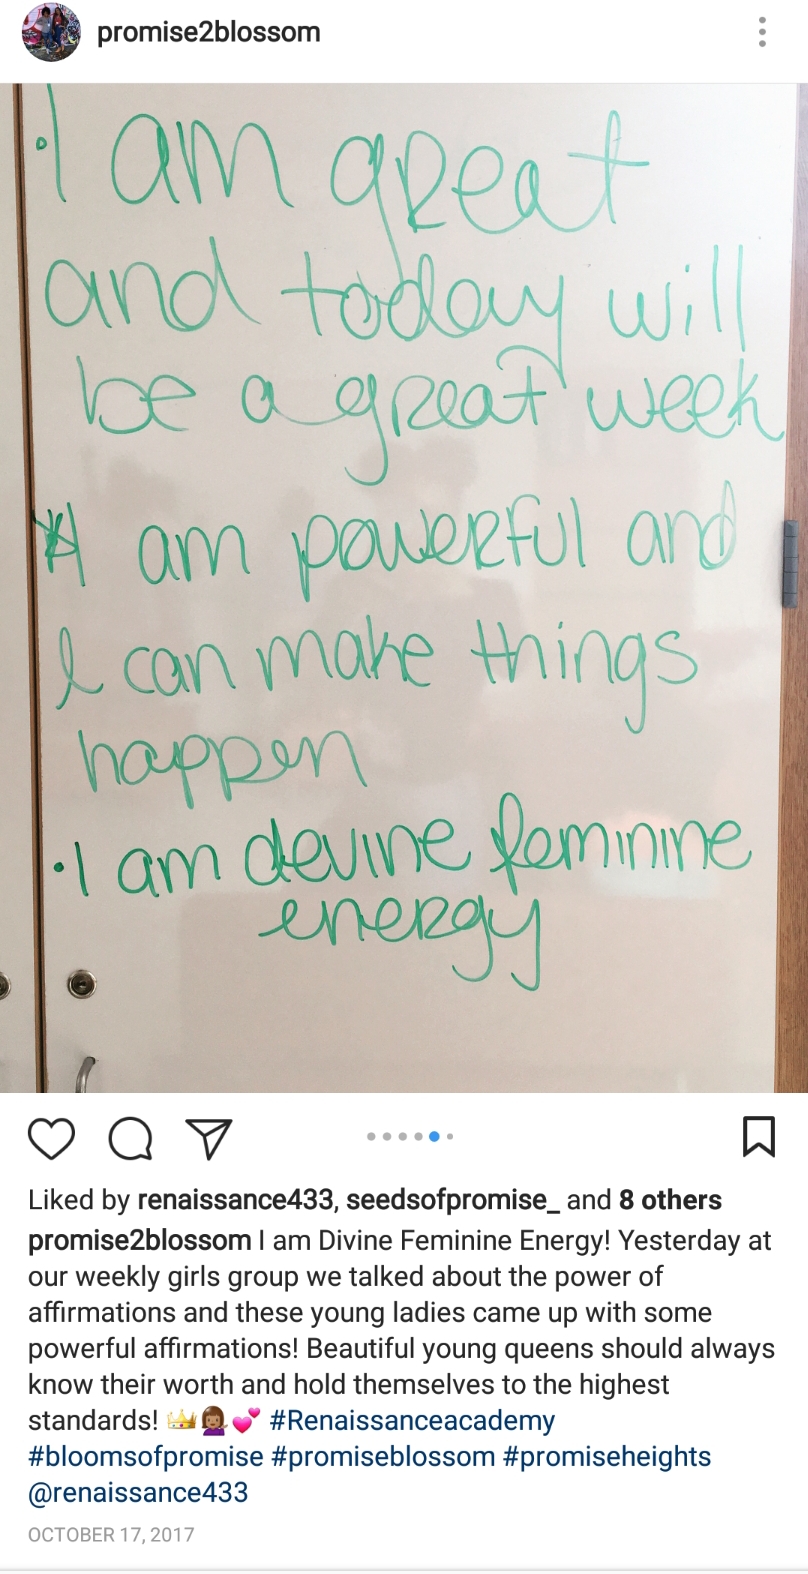 promise2blossom
• I am great
and today will
be a great week
* I am powerful and
I can make things
happen
• I am devine feminine
energy
Liked by renaissance433, seedsofpromise_ and 8 others
promise2blossom I am Divine Feminine Energy! Yesterday at
our weekly girls group we talked about the power of
affirmations and these young ladies came up with some
powerful affirmations! Beautiful young queens should always
know their worth and hold themselves to the highest
standards! 👑💁🏽‍♀️💕 #Renaissanceacademy
#bloomsofpromise #promiseblossom #promiseheights
@renaissance433
OCTOBER 17, 2017